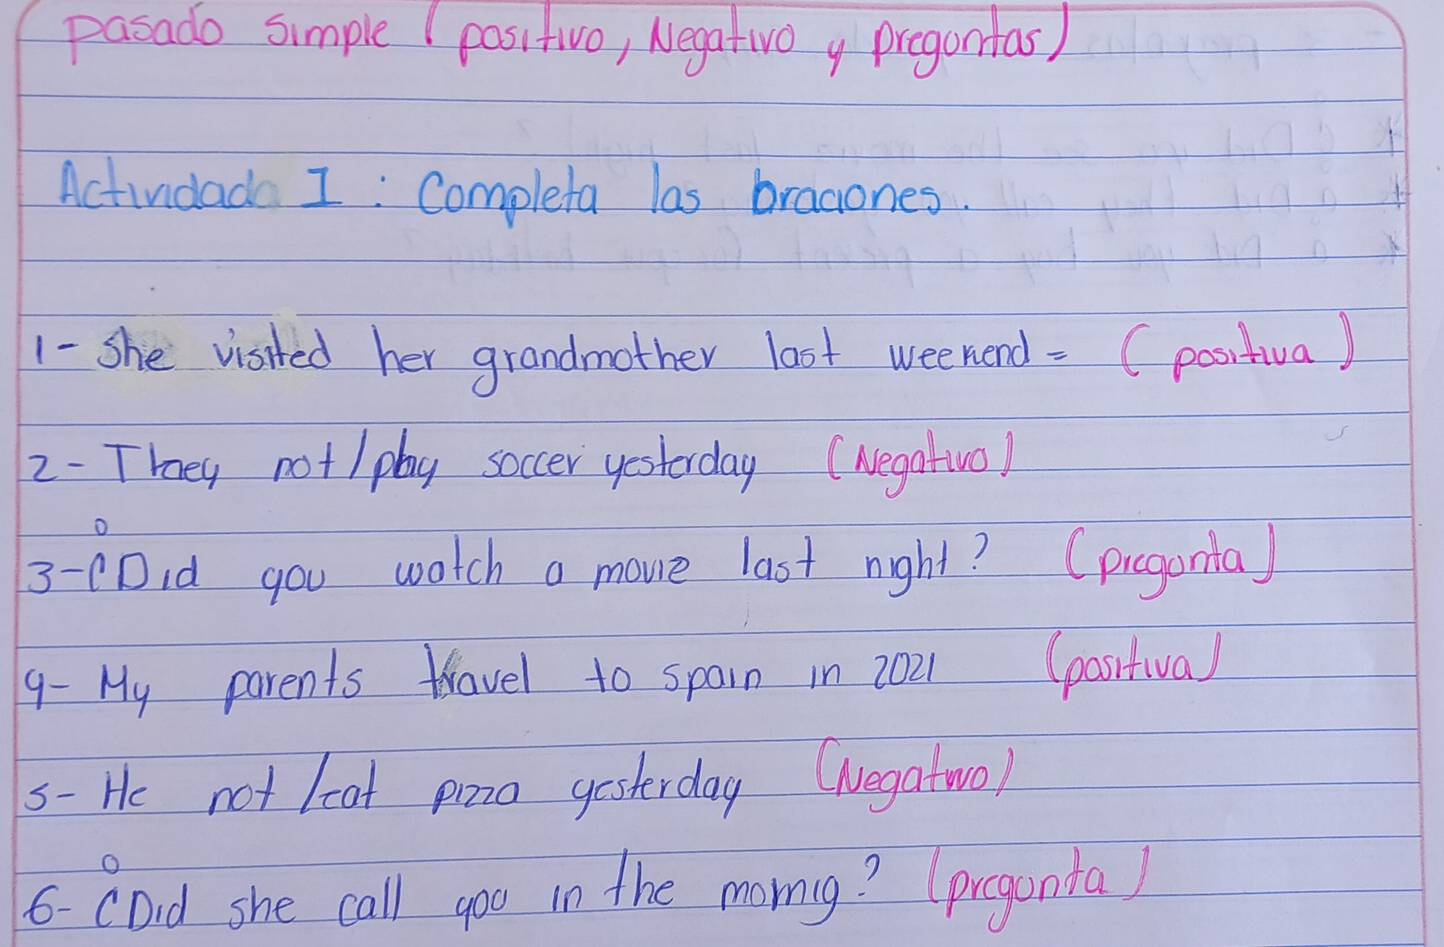 pasado simple (positivo, Negativo y preguntas)
Actividada I : Completa las braciones.
1- She visited her grandmother last weekend = (positiva)
2- They not/play soccer yesterday (Negativo)
3- ¿Did you watch a movie last night? (pregunta)
4- My parents travel to spain in 2021 (positiva)
5- He not/eat pizza yesterday (Negativo)
6- ¿Did she call you in the mornig? (pregunta)